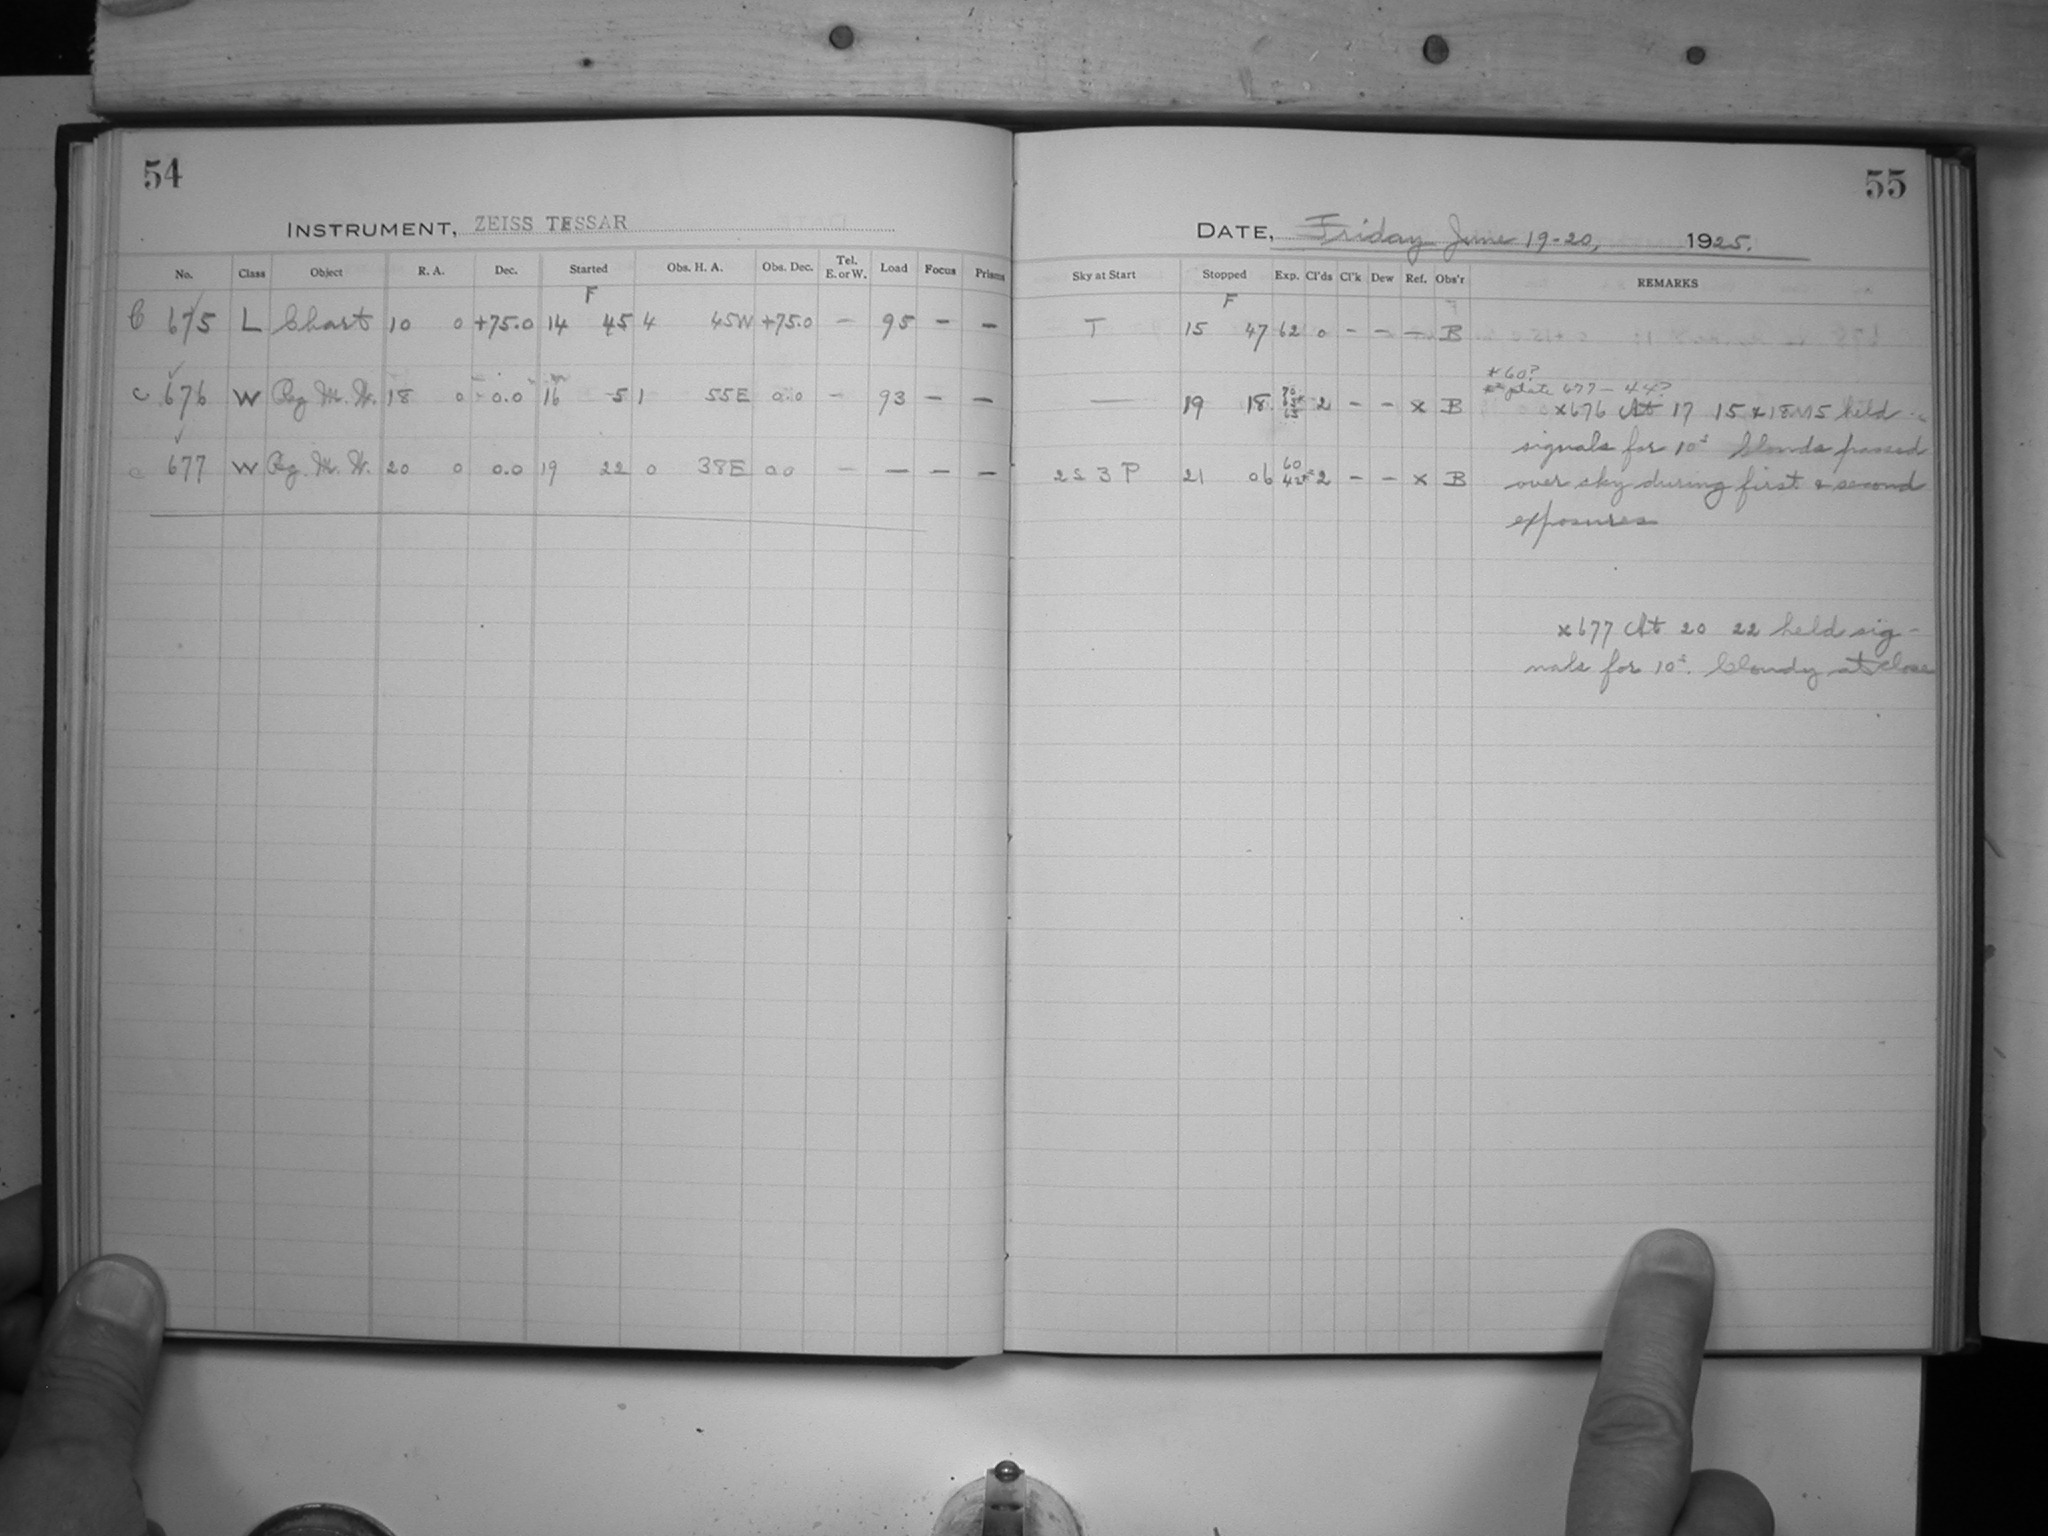 54
INSTRUMENT, ZEISS TESSAR
No. Class Object R. A. Dec. Started Obs. H. A. Obs. Dec. Tel. E. or W. Load Focus Prisms
F
C 675 L Chart 10 0 +75.0 14 45 4 45W +75.0 - 95 - -
C 676 W Rg. M. W. 18 0 0.0 16 51 55E 0.0 - 93 - -
C 677 W Rg. M. W. 20 0 0.0 19 22 0 38E 0.0 - - - -
55
DATE, Friday June 19-20, 1925.
Sky at Start Stopped Exp. Cl'ds Cl'k Dew Ref. Obs'r REMARKS
F
T 15 47 62 0 - - - B
* 60?
plate 677 - 44?
— 19 18 70 2 - - x B
x676 At 17 15 & 18 15 held
signals for 10s Clouds passed
2 S 3 P 21 06 60 2 - - x B
over sky during first & second
exposures
x677 At 20 22 held sig-
nals for 10s. Cloudy at close